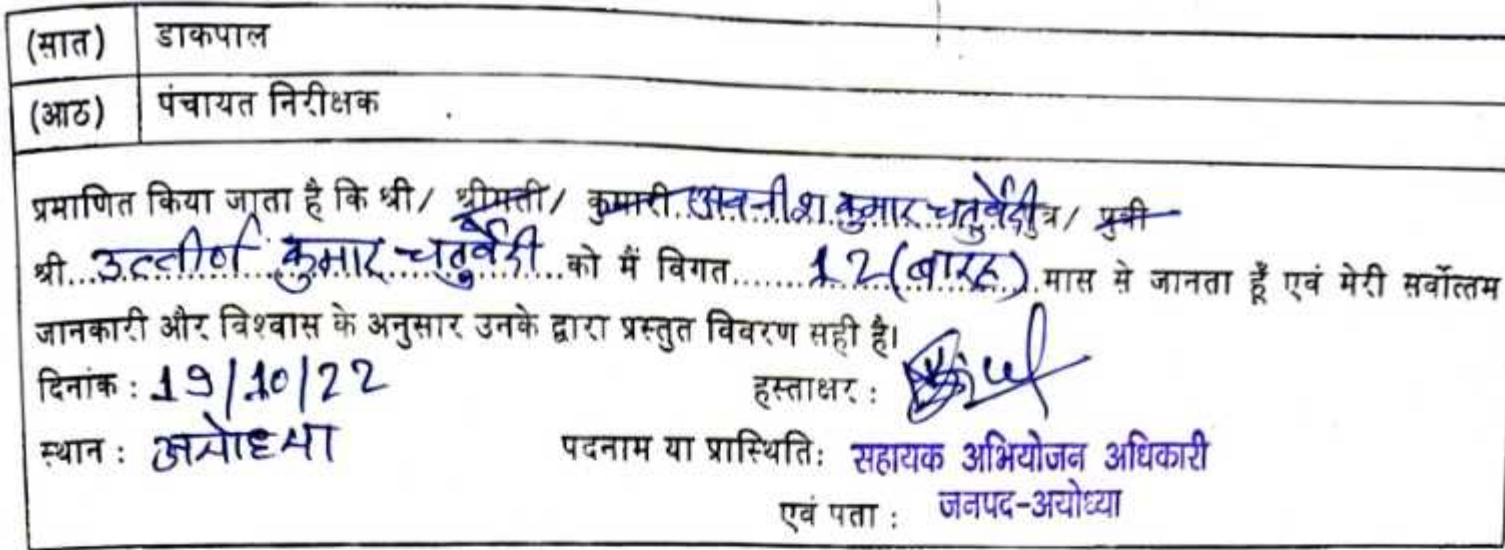 (सात) डाकपाल
(आठ) पंचायत निरीक्षक
प्रमाणित किया जाता है कि श्री/ श्रीमती/ कुमारी अवनीश कुमार चतुर्वेदी पुत्र/ पुत्री
श्री...उत्तीर्ण कुमार चतुर्वेदी...को मैं विगत........12 (बारह).मास से जानता हूँ एवं मेरी सर्वोत्तम
जानकारी और विश्वास के अनुसार उनके द्वारा प्रस्तुत विवरण सही है।
दिनांक : 19/10/22 हस्ताक्षर :
स्थान : अयोध्या पदनाम या प्रास्थिति: सहायक अभियोजन अधिकारी
एवं पता : जनपद-अयोध्या